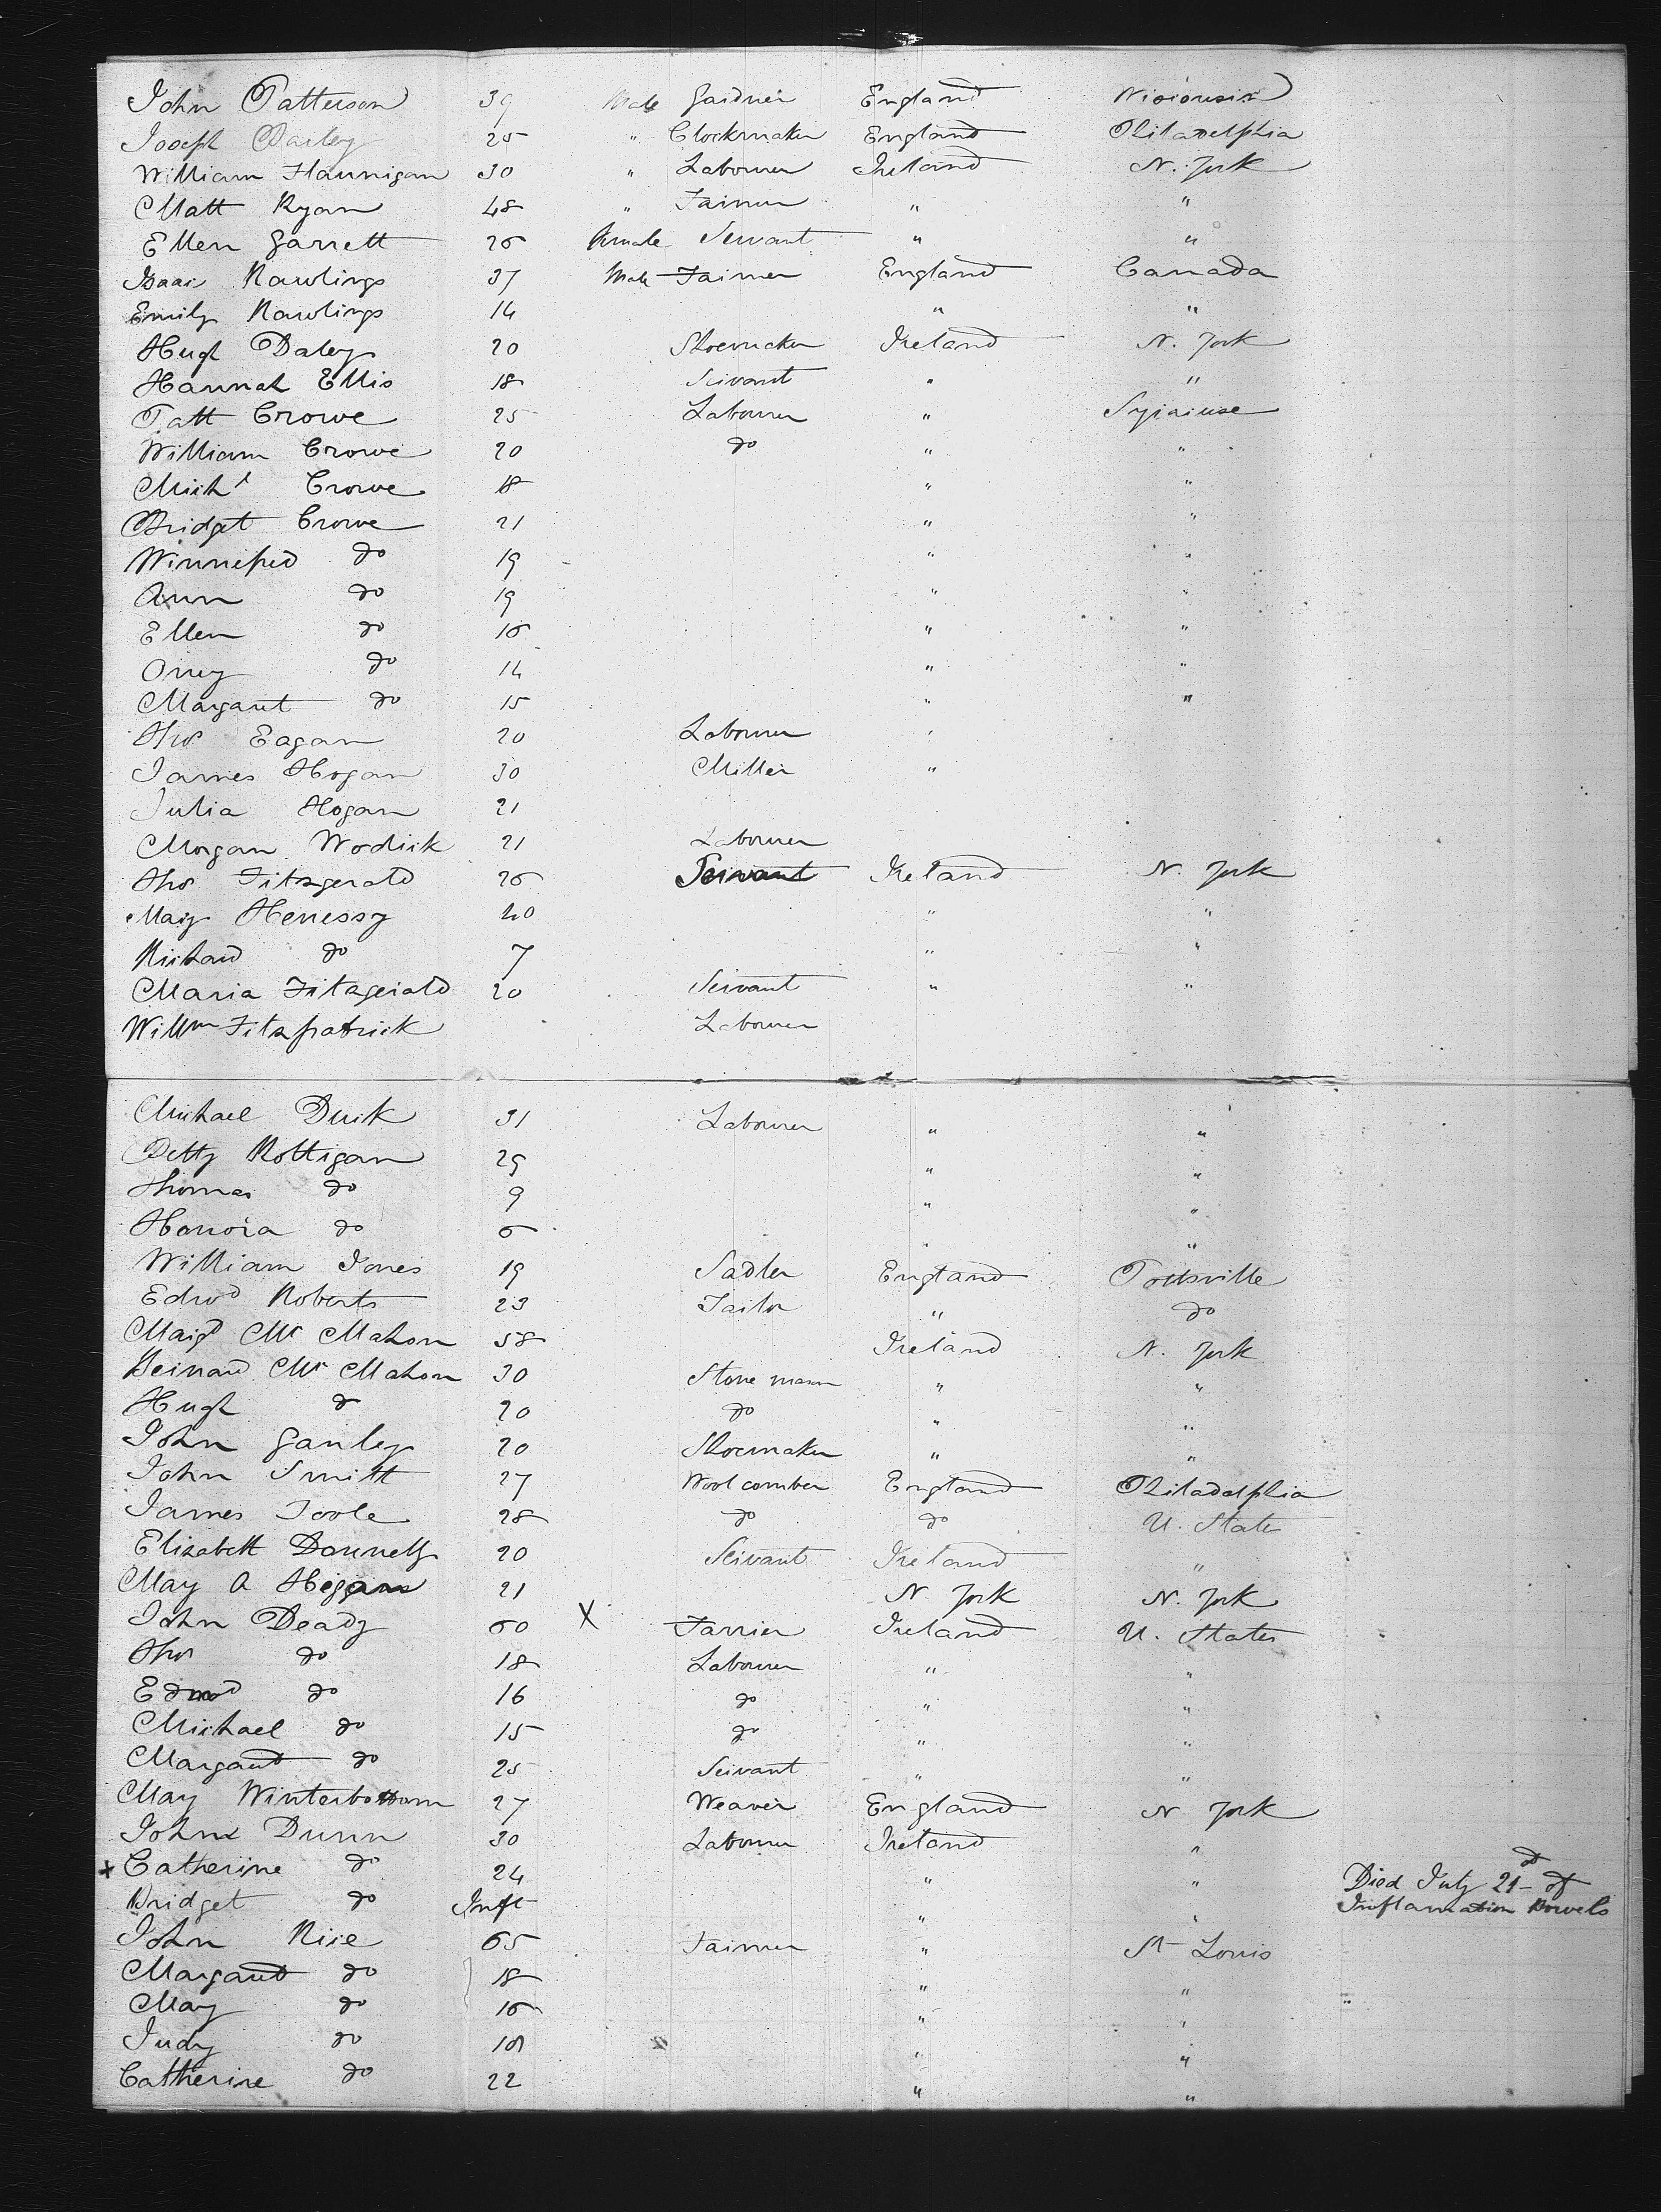 John Patterson 39 Male Gardner England Wisconsin
Joseph Bailey 25 " Clockmaker England Philadelphia
William Flannigan 30 " Labourer Ireland N. York
Matt Ryan 48 " Farmer " "
Ellen Garrett 26 Female Servant " "
Isaac Rawlings 37 Male Farmer England Canada
Emily Rawlings 14 " "
Hugh Daley 20 Shoemaker Ireland N. York
Hannah Ellis 18 Servant " "
Patt Crowe 25 Labourer " Syracuse
William Crowe 20 do " "
Michl Crowe 18 " "
Bridget Crowe 21 " "
Winnifred do 19 " "
Ann do 19 " "
Ellen do 16 " "
do 14 " "
Margaret do 15 " "
Thos Eagan 20 Labourer "
James Hogan 30 Miller "
Julia Hogan 21
Morgan 21 Labourer
Thos Fitzgerald 26 Servant Ireland N. York
Mary Henessy 40 " "
Richard do 7 " "
Maria Fitzgerald 20 Servant " "
Willm Fitzpatrick Labourer
Michael 31 Labourer " "
Betty Rottigan 29 " "
Thomas do 9 " "
Honora do 6 " "
William Jones 19 Sadler England Pottsville
Edwd Roberts 23 Tailor " do
Margt Mc Mahon 58 Ireland N. York
Bernard Mc Mahon 30 Stone mason " "
Hugh do 20 do " "
John Ganley 20 Shoemaker " "
John Smith 27 Wool comber England Philadelphia
James Toole 28 do do U. States
Elizabeth Donnelly 20 Servant Ireland "
Mary A 21 N York N. York
John Deady 60 X Farrier Ireland U. States
Thos do 18 Labourer " "
Edmd do 16 do " "
Michael do 15 do " "
Margaret do 25 Servant " "
Mary Winterbottom 27 Weaver England N York
John Dunn 30 Labourer Ireland "
x Catherine do 24 " " Died July 21st of
Bridget do Inft " " Inflamation Bowels
John Rice 65 Farmer " St Louis
Margaret do 18 " "
Mary do 16 " "
Judy do " "
Catherine do 22 " "